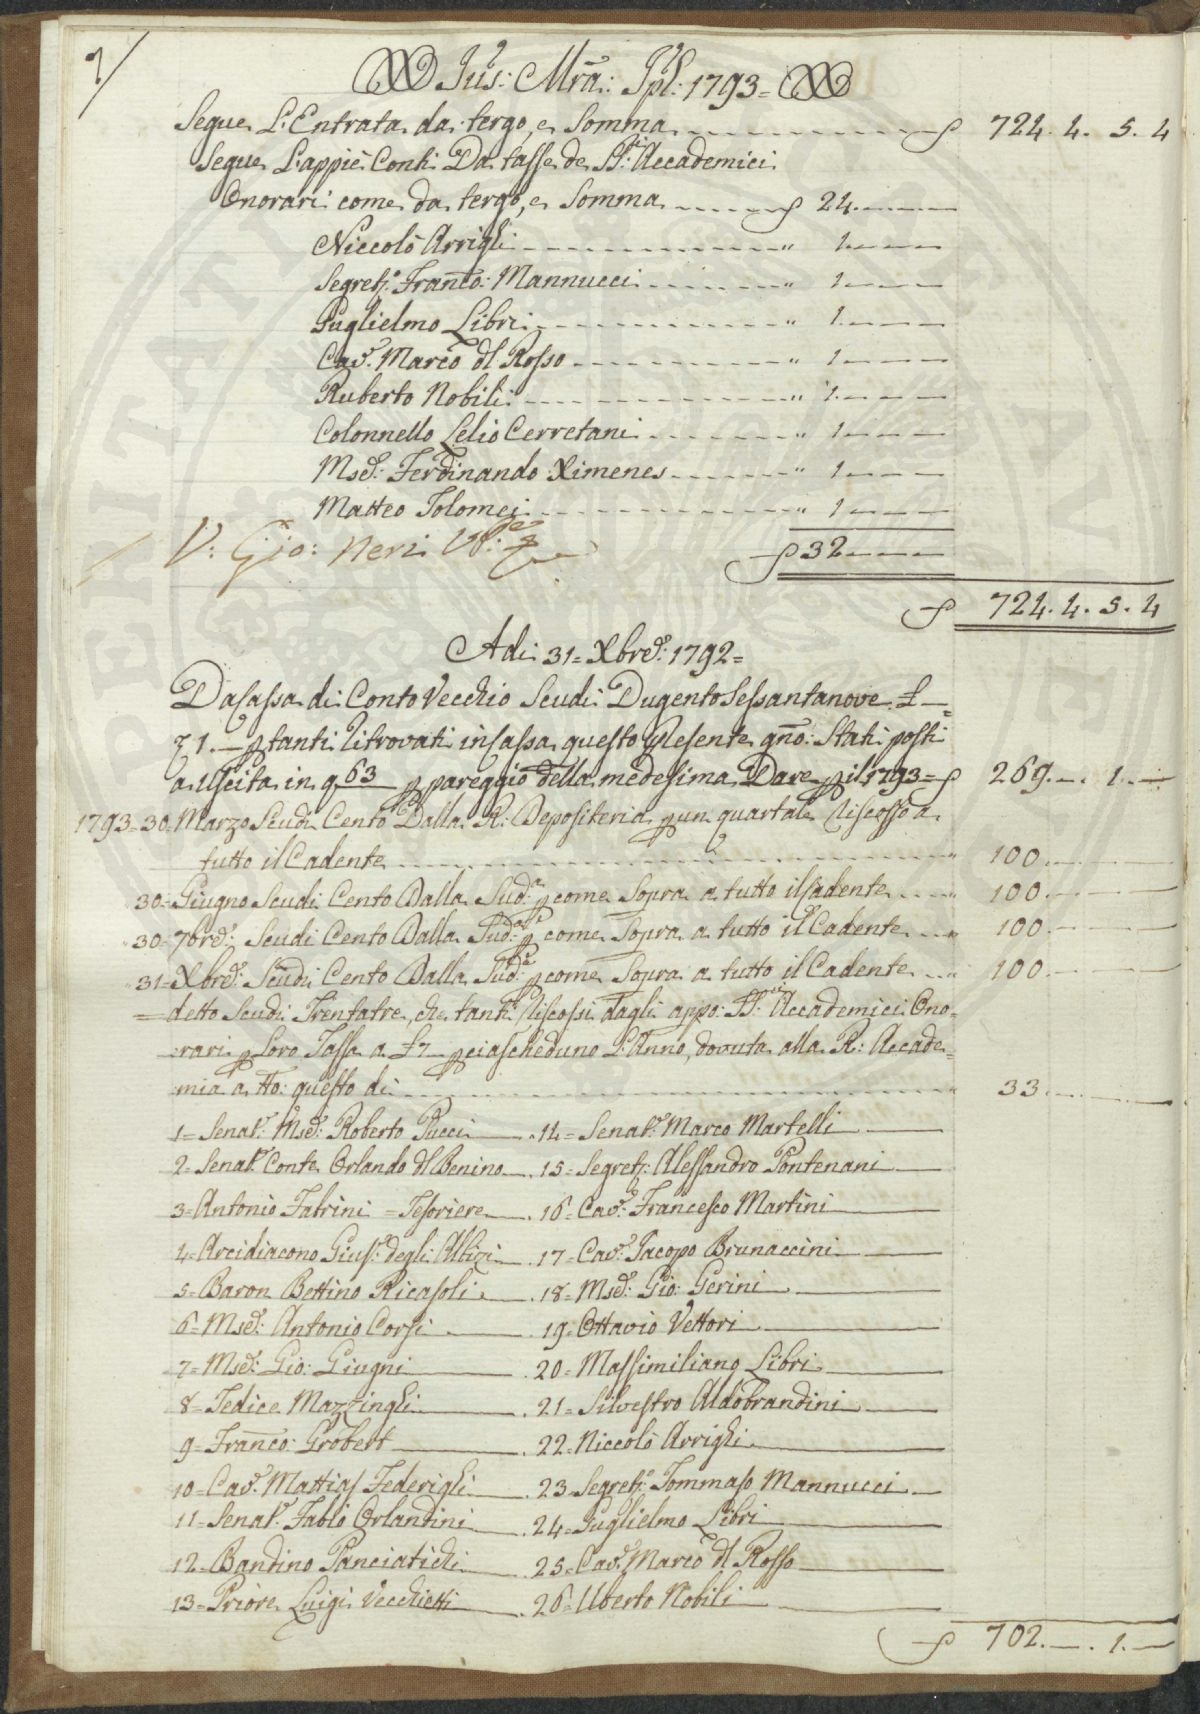 7/
Jus: Mra: Jpl: 1793=
Segue L'Entrata da tergo, e Somma ƒ 724. 4. 5. 4
Segue L'appiè Conti Da tasse de SS:ri Accademici
Onorari come da tergo, e Somma ƒ 24
Niccolò Arrighi " 1
Segret:o Franco: Mannucci " 1
Guglielmo Libri " 1
Cav:e Marco dl Rosso " 1
Ruberto Nobili " 1
Colonnello Lelio Cerretani " 1
Mse: Ferdinando Ximenes " 1
Matteo Tolomei " 1
V: Gio: Neri
ƒ 32
ƒ 724. 4. 5. 4
Adi 31= Xbre: 1792=
Da Cassa di Conto Vecchio Scudi Dugento Sessantanove £ —
1. — p tanti Ritrovati in Cassa questo presente gno: Stati posti
a Uscita in q 63 p pareggio della medesima Dare p il 1793= ƒ 269. — . 1. —
1793=30= Marzo Scudi Cento Dalla R: Depositeria p un quartale Riscosso a
tutto il Cadente " 100
30= Giugno Scudi Cento Dalla Sud:a p come Sopra a tutto il Cadente " 100
30= 7bre: Scudi Cento Dalla Sud:a p come Sopra a tutto il Cadente " 100
31= Xbre: Scudi Cento Dalla Sud:a p come Sopra a tutto il Cadente " 100
= detto Scudi Trentatre, che tanti Riscossi dagli appo: SS:ri Accademici Ono-
rari p Loro Tassa a £7 — p ciascheduno L'Anno, dovuta alla R: Accade=
mia a tto: questo dì " 33
1= Senat:e Mse: Roberto Pucci
14= Senat:e Marco Martelli
2= Senat:e Conte Orlando dl Benino
15= Segret: Alessandro Pontenani
3= Antonio Fabrini = Tesoriere
16= Cav:e Francesco Martini
4= Arcidiacono Gius:e degli Albizi
17= Cav:e Jacopo Brunaccini
5= Baron Bettino Ricasoli
18= Mse: Gio: Gerini
6= Mse: Antonio Corsi
19= Ottavio Vettori
7= Mse: Gio: Giugni
20= Massimiliano Libri
8= Tedice Mazzinghi
21= Silvestro Aldobrandini
9= Franco: Grobert
22= Niccolò Arrighi
10= Cav:e Mattias Federighi
23= Segret:o Tommaso Mannucci
11= Senat:e Fabio Orlandini
24= Guglielmo Libri
12= Bandino Panciatichi
25= Cav:e Marco dl Rosso
13= Priore Luigi Vecchietti
26= Uberto Nobili
ƒ 702. — . 1. —